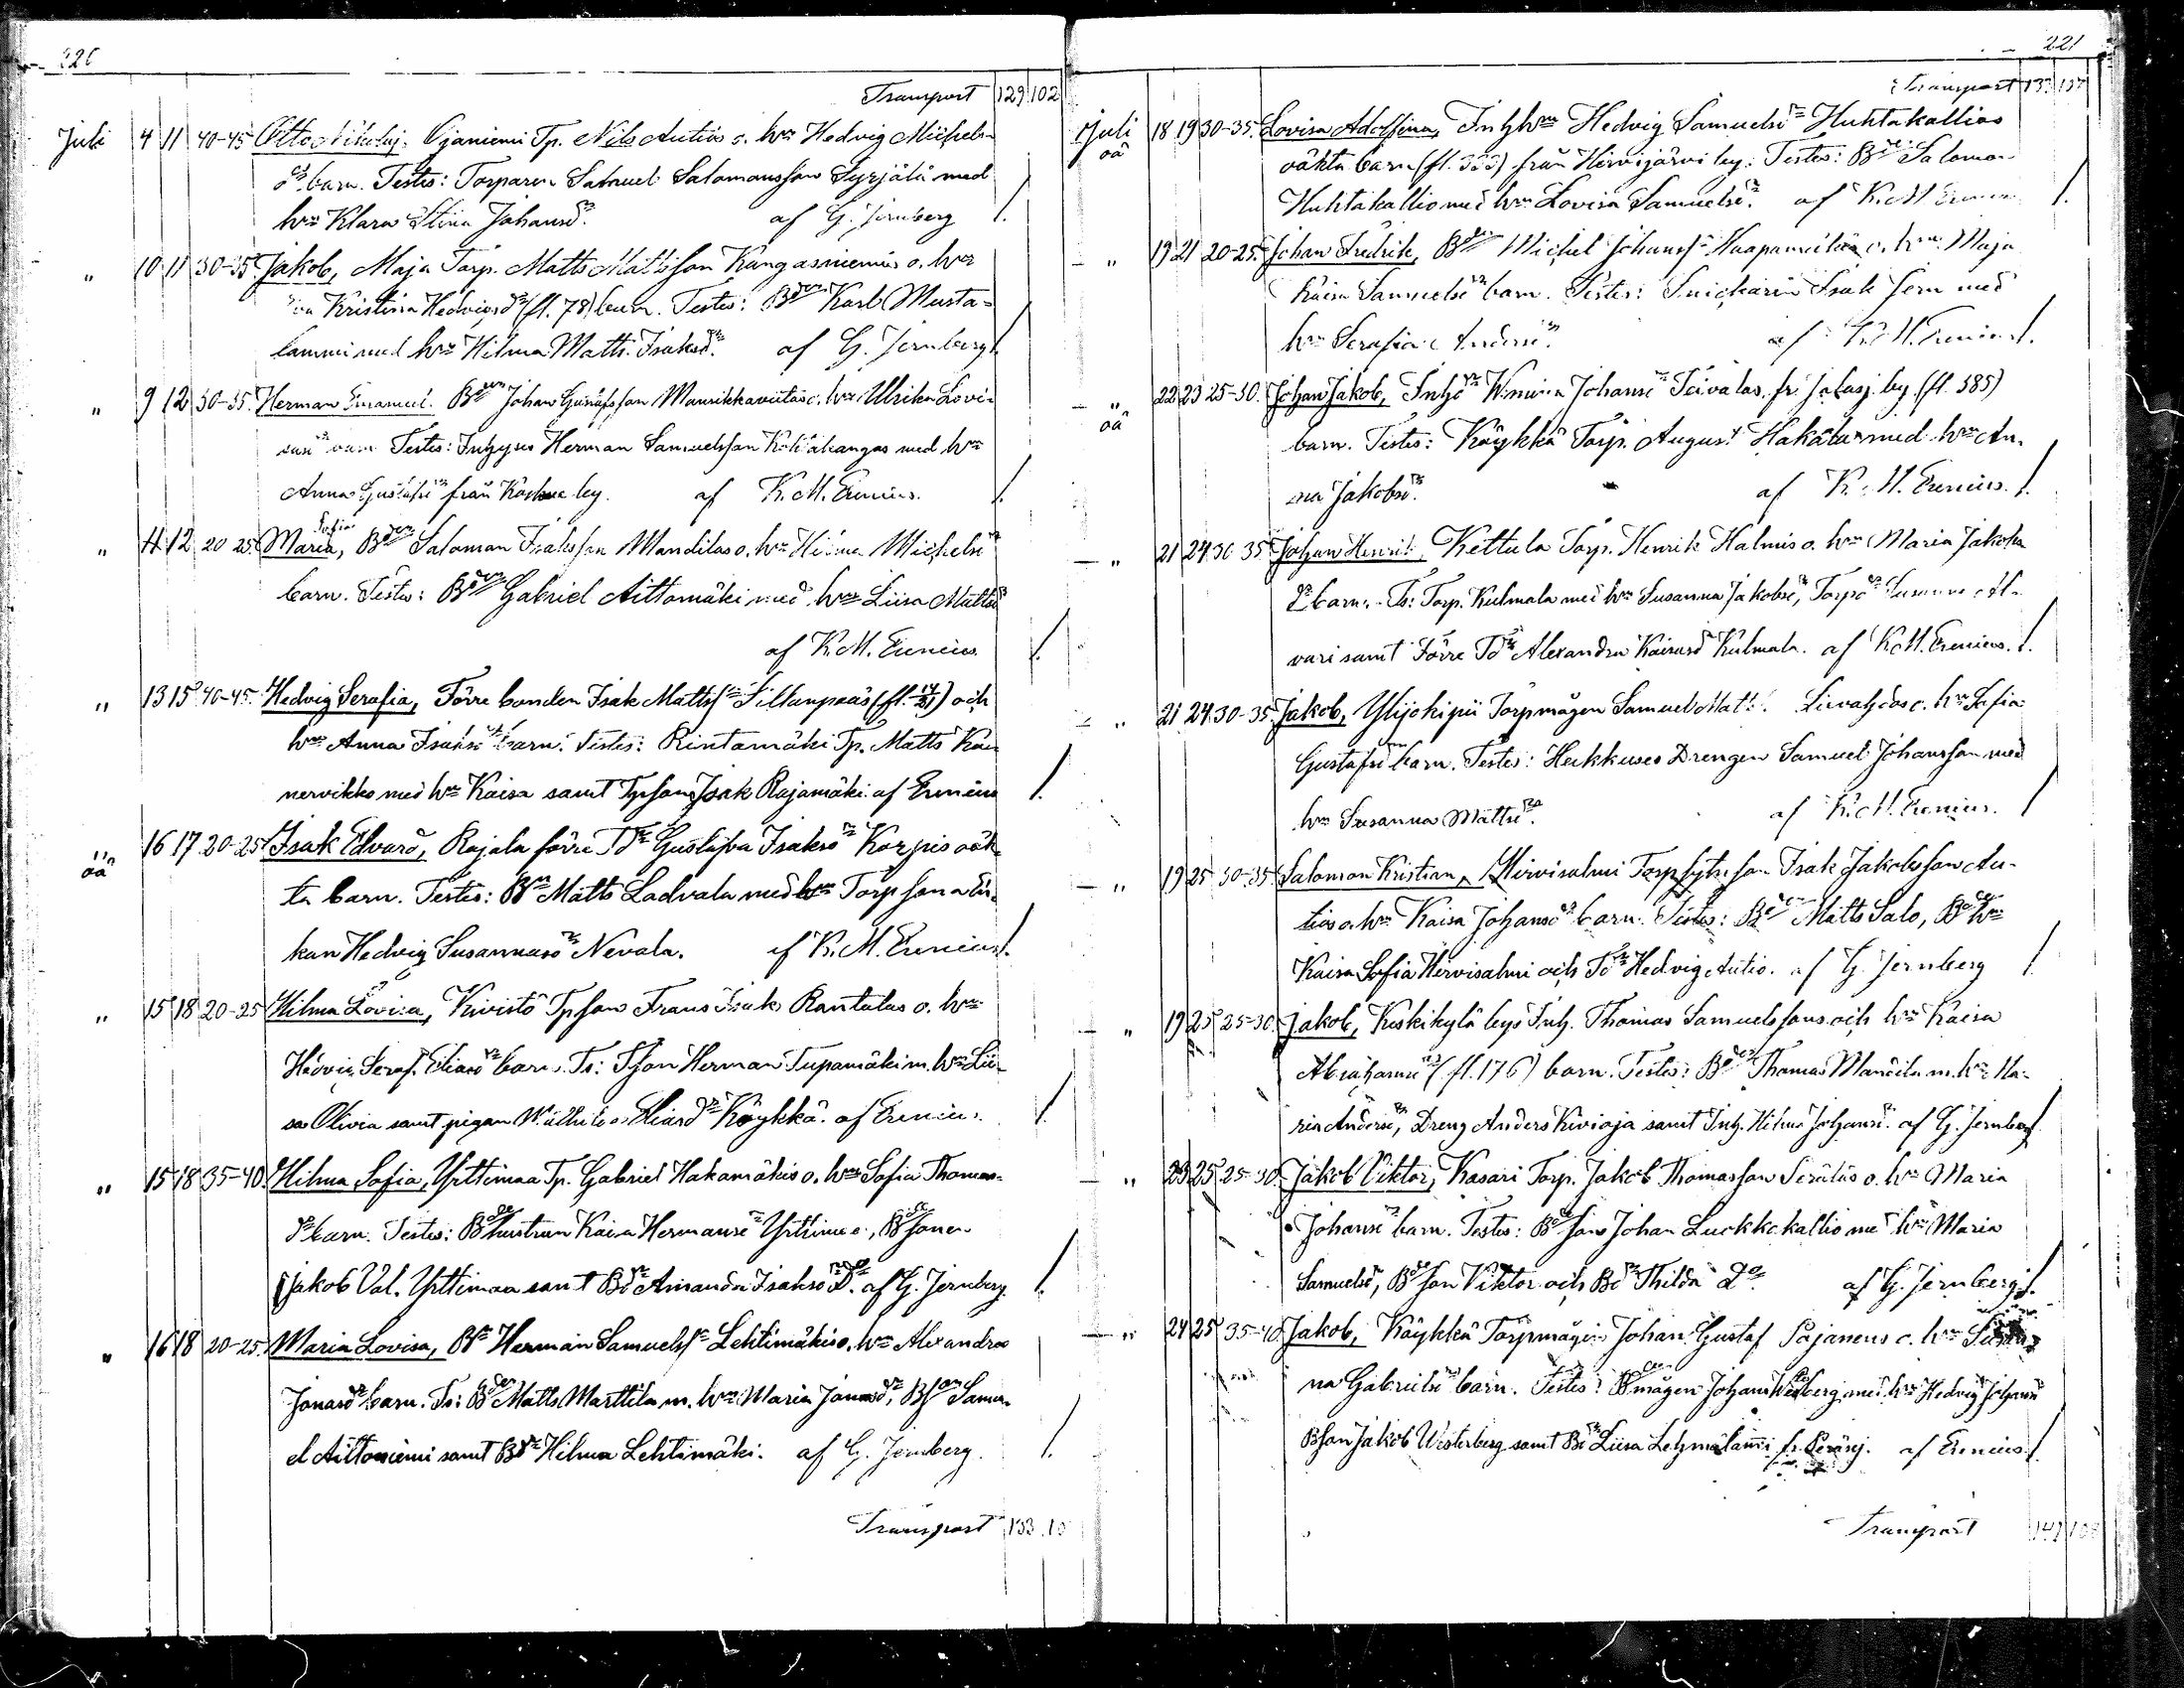 220
Transport 129 102
Juli 4 11 40-45 Otto Nikolaj, Ojaniemi Tp. Nils Autios o. hu Hedvig Michels-
dr barn. Testes: Torparen Samuel Salomonsson Syrjälä med
hu Klara Stina Johansdr. af G. Jernberg /.
" 10 11 30-35 Jakob, Maja Torp. Matts Mattsson Kangasniemis o. hu
Kristina Hedvigsdr (fl. 78) barn. Testes: Bden Karl Musta-
lammi med hu Hilma Matts Isaksdr. af G. Jernberg /.
" 9 12 30-35. Herman Emanuel. Bden Johan Gustafsson Mannikkaviitas o. hu Ulrika Lovi-
barn Testes: Inhyses Herman Samuelsson med hu
Anna Gustafsdr från by. af K. M. Erenius. /.
" 11 12 20 25. Maria Sofia, Bden Salomon Isaksson Mandilas o. hu Hilma Michelsdr
barn. Testes: Bden Gabriel Aittomäki med hu Liisa Mattsdr
af K. M. Erenius. /.
" 13 15 40-45. Hedvig Serafia, Förre bonden Isak Mattss Sillanpääs (fl. 14/21) och
hu Anna Isaksdr barn. Testes: Rintamäki Tp. Matts Kan-
nervikko med hu Kaisa samt Tpson Isak Rajamäki. af Erenius /.
" oä 16 17 20-25 Isak Edvard, Rajala förre Tdr Gustafva Isaksdr Korpis oäk-
ta barn. Testes: Bn Matts Ladvala med hu Torpsonaen-
kan Hedvig Susannasdr Nevala. af K. M. Erenius /.
" 15 18 20-25 Hilma Lovisa, Kivistö Tpson Frans Isaks Rantalas o. hu
Hedvig Seraf. Eliasdr barn. Ts: Tson Herman Tupamäki m. hu Lii-
sa Olivia samt pigan Eliasdr Köykkä. af Erenius. /.
" 15 18 35-40. Hilma Sofia, Yrttimaa Tp. Gabriel Hakamäkis o. hu Sofia Thomas-
dr barn. Testes: Bdehustrun Kaisa Hermansdr Yrttimaa, Bdesonen
Jakob Val. Yrttimaa samt Bdr Amanda Isaksdr Do. af G. Jernberg. /.
" 16 18 20-25. Maria Lovisa, Bn Herman Samuelss Lehtimäkis o. hu Alexandra
Jonasdr barn. Ts: Bden Matts Marttila m. hu Maria Jonasdr, Bson Samu-
el Aittoniemi samt Bdr Hilma Lehtimäki. af G. Jernberg. /.
Transport 133
221
Transport 133 107
Juli oä 18 19 30-35. Lovisa Adolfina, Inhhu Hedvig Samuelsdr Huhtakallios
oäkta barn (fl. 333) från Hirvijärvi by. Testes: Bden Salomon
Huhtakallio med hu Lovisa Samuelsdr. af K. M. Erenius /.
" 19 21 20-25. Johan Fredrik, Bden Michel Johanss Haapamäkis o. hu Maja
Kaisa Samuelsdr barn. Testes: Snickaren Isak Jern med
hu Serafia Andersdr. af K. M. Erenius /.
" oä 22 23 25-30. Johan Jakob, Inhdr Johansdr Toivalas, fr. Jalasj. by (fl. 385)
barn. Testes: Köykkä Torp. August Hakala med hu An-
na Jakobsdr. af K. M. Erenius. /.
" 21 24 30 35 Johan Henrik, Kettula Torp. Henrik Halmis o. hu Maria Jakobs
dr barn. Ts: Torp. Kulmala med hu Susanna Jakobsdr, Torpdr Susanna Al-
vari samt Förre Tdr Alexandra Kaisasdr Kulmala. af K. M. Erenius. /.
" 21 24 30-35. Jakob, Ylijokipii Torpmågen Samuel Matts. o. hu Sofia
Gustafsdr barn. Testes: Heikkuses Drengen Samuel Johansson med
hu Susanna Mattsdr. af K. M. Erenius. /
" 19 25 30-35. Salomon Kristian, Hirvisalmi Torpsytn. son Isak Jakobsson Au-
tios o. hu Kaisa Johansdr barn. Testes: Bden Matts Salo, Bdehu
Kaisa Sofia Hirvisalmi och Tdr Hedvig Autio. af G. Jernberg /.
" 19 25 25-30. Jakob, Keskikylä bys Inh. Thomas Samuelssons och hu Kaisa
Abrahamsdr (fl. 176) barn. Testes: Bden Thomas Mandila m. hu Ma-
ria Andersdr, Dreng Anders Kivioja samt Inh. Hilma Johansdr. af G. Jernberg /.
" 23 25 25-30. Jakob Viktor, Kasari Torp. Jakob Thomasson Seräläs o. hu Maria
Johansdr barn. Testes: Bdeson Johan Luokkakallio med hu Maria
Samuelsdr, Bdeson Viktor och Bdr Thilda Do. af G. Jernberg /.
" 24 25 35-40. Jakob, Köykkä Torpmågen Johan Gustaf Pajanens o. hu Susan-
na Gabrielsdr barn. Testes: Bdemågen Johan Westerberg med hu Hedvig Johansdr
Bson Jakob Westerberg samt Bdr Liisa Lehmälammi fr. Peräsj. af Erenius /.
Transport 141 108